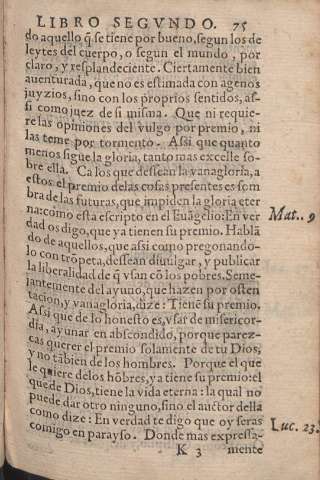 LIBRO SEGVNDO. 75
do aquello q̃ se tiene por bueno, segun los de
leytes del cuerpo, o segun el mundo, por
claro, y resplandeciente. Ciertamente bien
auenturada, que no es estimada con agenos
juyzios, sino con los proprios sentidos, as-
si como juez de si misma. Que ni requie-
re las opiniones del vulgo por premio, ni
las teme por tormento. Assi que quanto
menos sigue la gloria, tanto mas excelle so-
bre ella. Ca los que dessean la vanagloria, a
estos el premio delas cosas presentes es som
bra de las futuras, que impiden la gloria eter
na: como esta escripto en el Euãgelio: En ver
dad os digo, que ya tienen su premio. Hablã
do de aquellos, que assi como pregonando-
lo con trõpeta, dessean diuulgar, y publicar
la liberalidad de q̃ vsan cõ los pobres. Seme-
lantemente del ayuno, que hazen por osten
tacion, y vanagloria, dize: Tienẽ su premio.
Assi que de lo honesto es, vsar de misericor-
dia, ayunar en abscondido, porque parez-
cas querer el premio solamente de tu Dios,
y no tãbien de los hombres. Porque el que
le quiere delos hõbres, ya tiene su premio: el
que de Dios, tiene la vida eterna: la qual no
puede dar otro ninguno, sino el auctor della
como dize: En verdad te digo que oy seras
comigo en parayso. Donde mas expressa-
K 3 mente
Mat.. 9
Luc. 23.